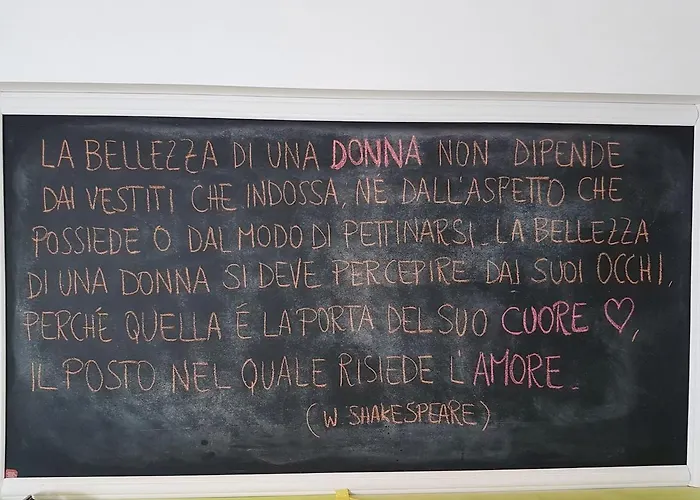 LA BELLEZZA DI UNA DONNA NON DIPENDE
DAI VESTITI CHE INDOSSA, NÉ DALL'ASPETTO CHE
POSSIEDE O DAL MODO DI PETTINARSI. LA BELLEZZA
DI UNA DONNA SI DEVE PERCEPIRE DAI SUOI OCCHI,
PERCHÉ QUELLA É LA PORTA DEL SUO CUORE ♡,
IL POSTO NEL QUALE RISIEDE L'AMORE.
(W SHAKESPEARE)